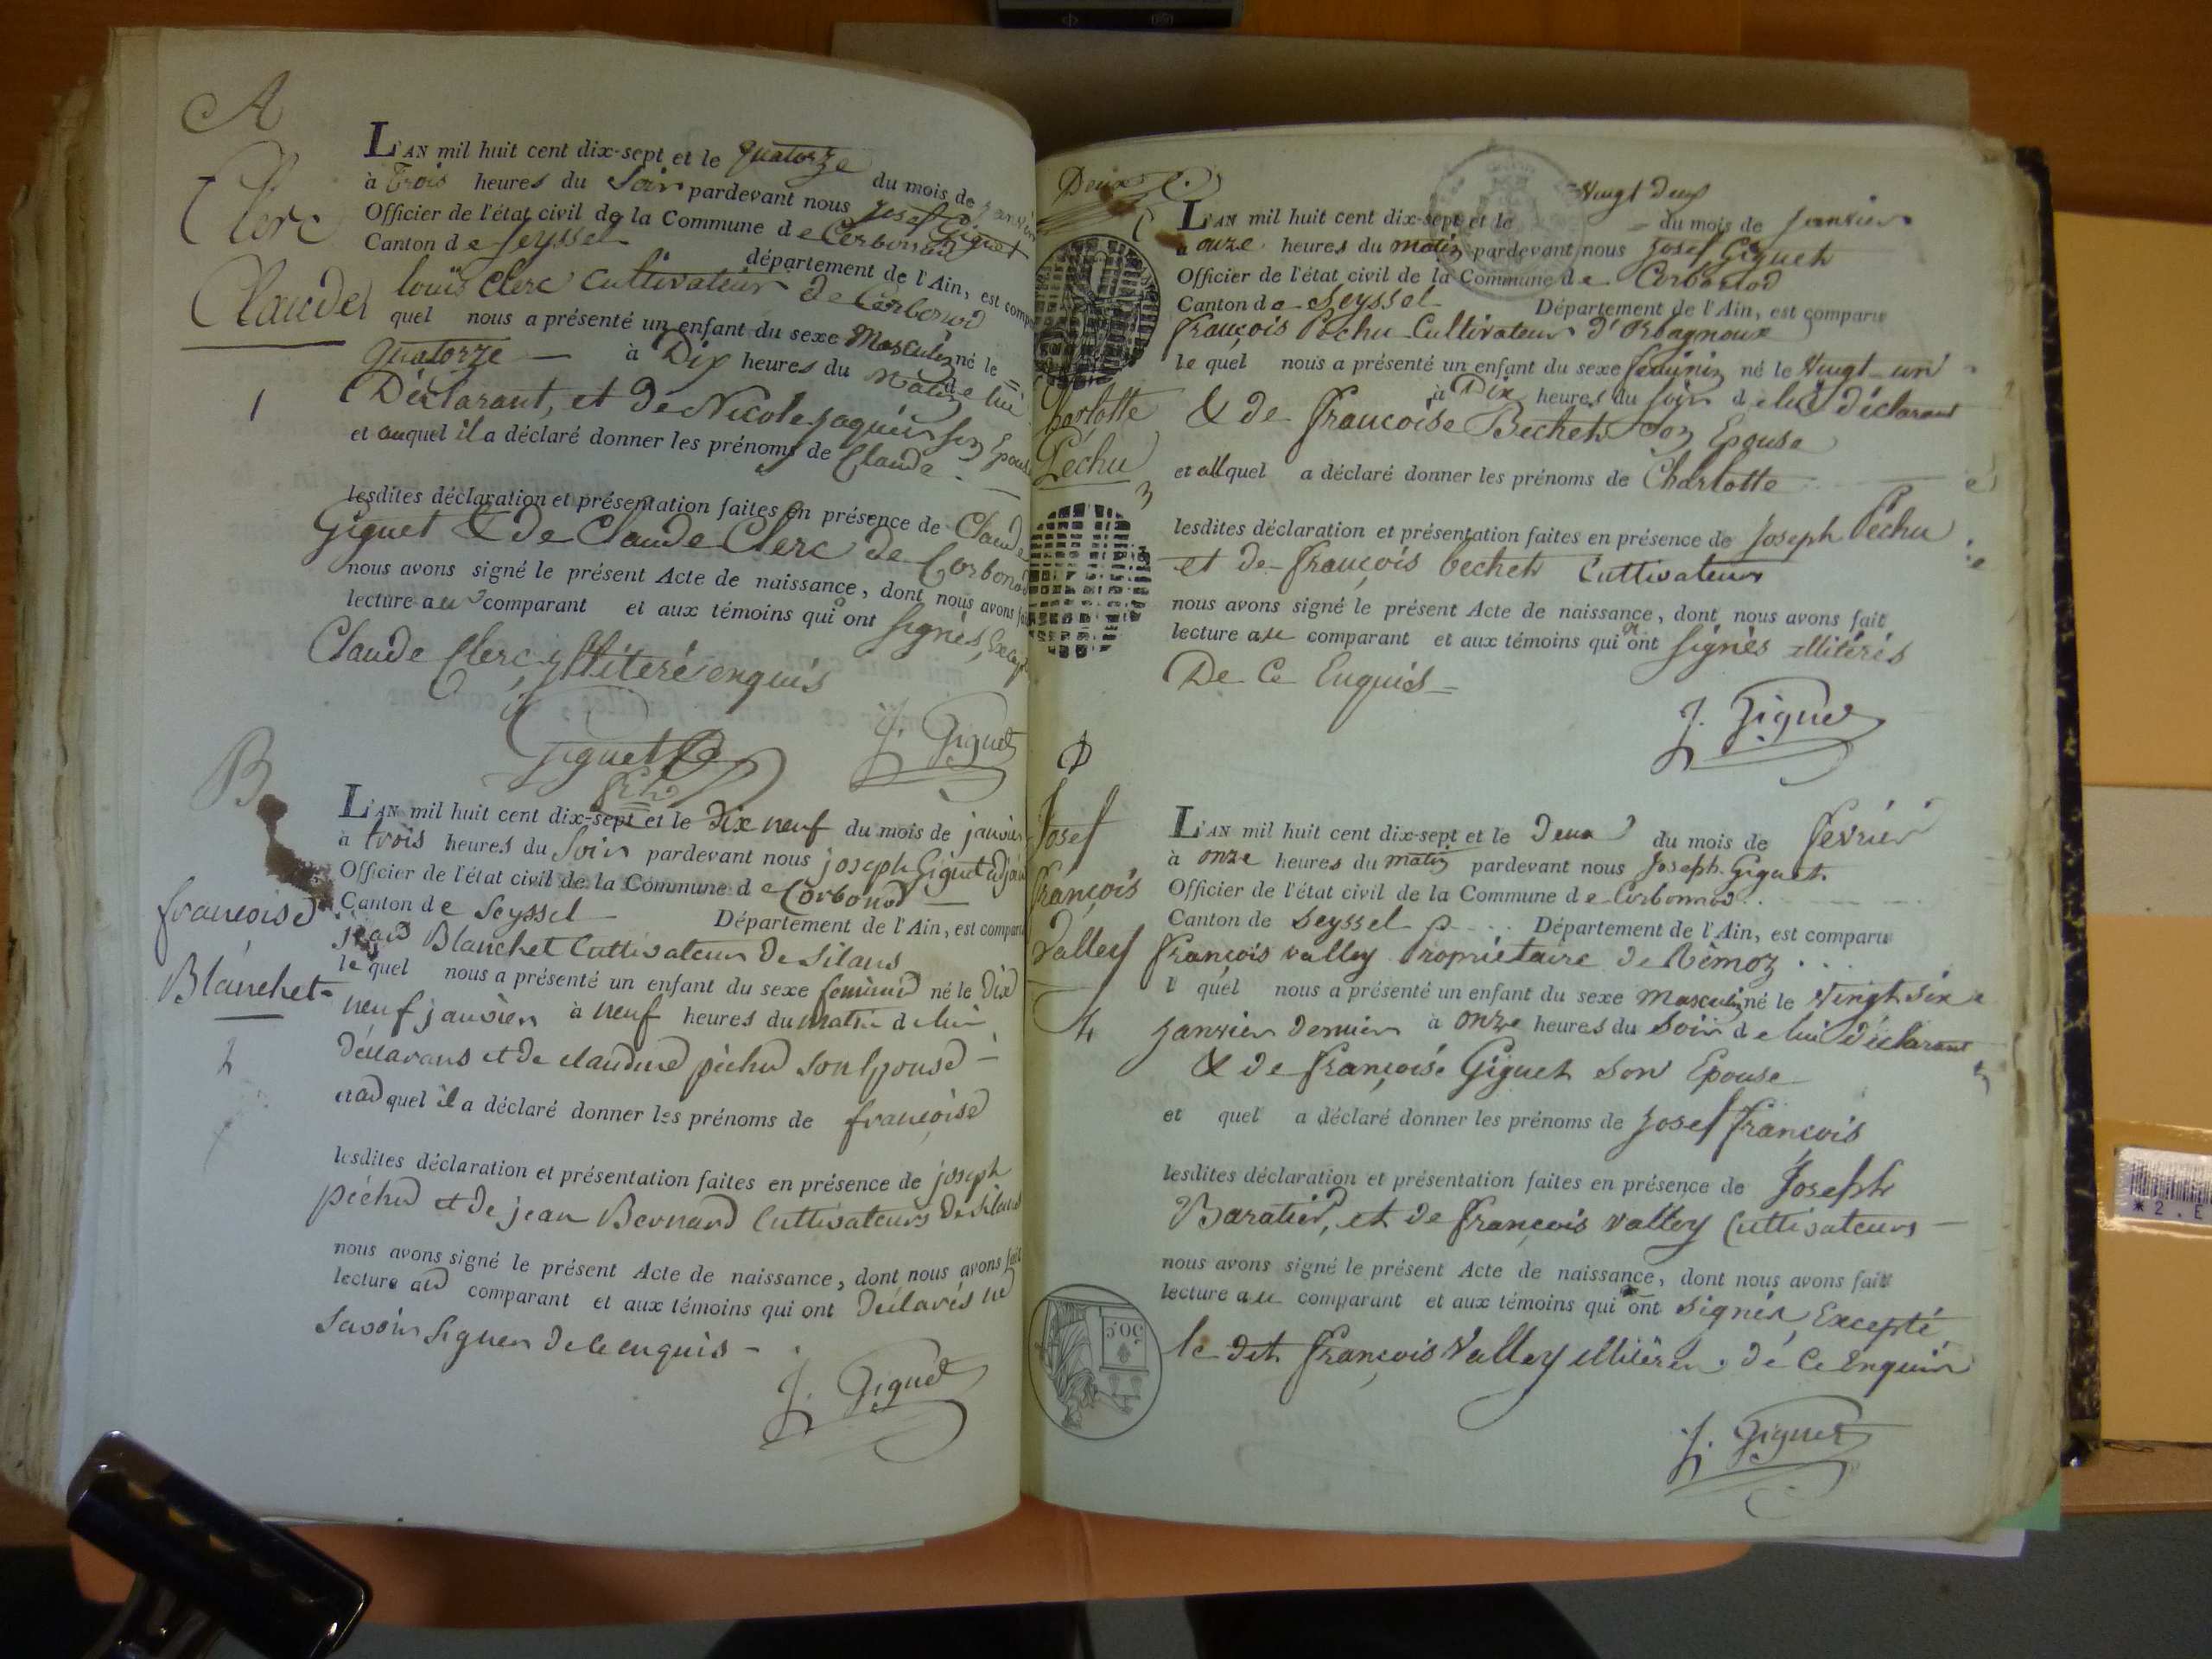 A
Clerc
Claude
1
L'AN mil huit cent dix-sept et le quatorze du mois de janvier
à Trois heures du Soir pardevant nous Josef Giguet
Officier de l'état civil de la Commune de Corbonod
Canton de Seyssel département de l'Ain, est compa
louis Clerc Cultivateur de Corbonod
quel nous a présenté un enfant du sexe Masculin né le
quatorze — à Dix heures du Matin de lui
Déclarant, et de Nicole Jaquier son Epouse
et auquel il a déclaré donner les prénoms de Claude
lesdites déclaration et présentation faites en présence de Claude
Giguet & de Claude Clerc de Corbonod
nous avons signé le présent Acte de naissance, dont nous avons fait
lecture au comparant et aux témoins qui ont signés, Excepté
Claude Clerc, yllitéré enquis
Giguet
J. Giguet
B
françoise
Blanchet
2
L'AN mil huit cent dix-sept et le dix neuf du mois de janvier
à trois heures du Soir pardevant nous joseph Giguet adjoint
Officier de l'état civil de la Commune de Corbonod
Canton de Seyssel Département de l'Ain, est comparu
Blanchet Cultivateur de Silans
lequel nous a présenté un enfant du sexe feminin né le Dix
neuf janvier à neuf heures du matin de lui
déclarans et de claudine péchu son Epouse
et au quel il a déclaré donner les prénoms de françoise
lesdites déclaration et présentation faites en présence de joseph
péchu et de jean Bernard Cultivateurs de Silans
nous avons signé le présent Acte de naissance, dont nous avons fait
lecture au comparant et aux témoins qui ont déclarés ne
savoir signer de ce enquis -
J. Giguet
Deux
Charlotte
Péchu
3
Vingt deux
L'AN mil huit cent dix-sept et le du mois de Janvier
a onze heures du matin pardevant nous Josef Giguet
Officier de l'état civil de la Commune de Corbonod
Canton de Seyssel Département de l'Ain, est comparu
françois Pechu Cultivateur d'Orbagnoux
le quel nous a présenté un enfant du sexe feminin né le Vingt-un
à Dix heures du soir de lui déclarant
& de francoise Bechet son Epouse
et auquel a déclaré donner les prénoms de Charlotte
lesdites déclaration et présentation faites en présence de Joseph Péchu
et de françois bechet Cultivateur
nous avons signé le présent Acte de naissance, dont nous avons fait
lecture au comparant et aux témoins qui ont signés illitérés
De Ce Enquis
J. Giguet
D
Josef
françois
Valley
4
L'AN mil huit cent dix-sept et le Deux du mois de fevrier
à onze heures du matin pardevant nous Joseph Giguet
Officier de l'état civil de la Commune de Corbonnod
Canton de Seyssel Département de l'Ain, est comparu
françois valley Propriétaire de Rèmoz
l quel nous a présenté un enfant du sexe Masculin né le Vingt six
Janvier dernier à onze heures du Soir de lui déclarant
& de françoise Giguet son Epouse
et quel a déclaré donner les prénoms de Josef françois
lesdites déclaration et présentation faites en présence de Joseph
Baratier, et de françois valley Cultivateurs
nous avons signé le présent Acte de naissance, dont nous avons fait
lecture au comparant et aux témoins qui ont signés, Excepté
le dit françois Valley de Ce enquis
J. Giguet